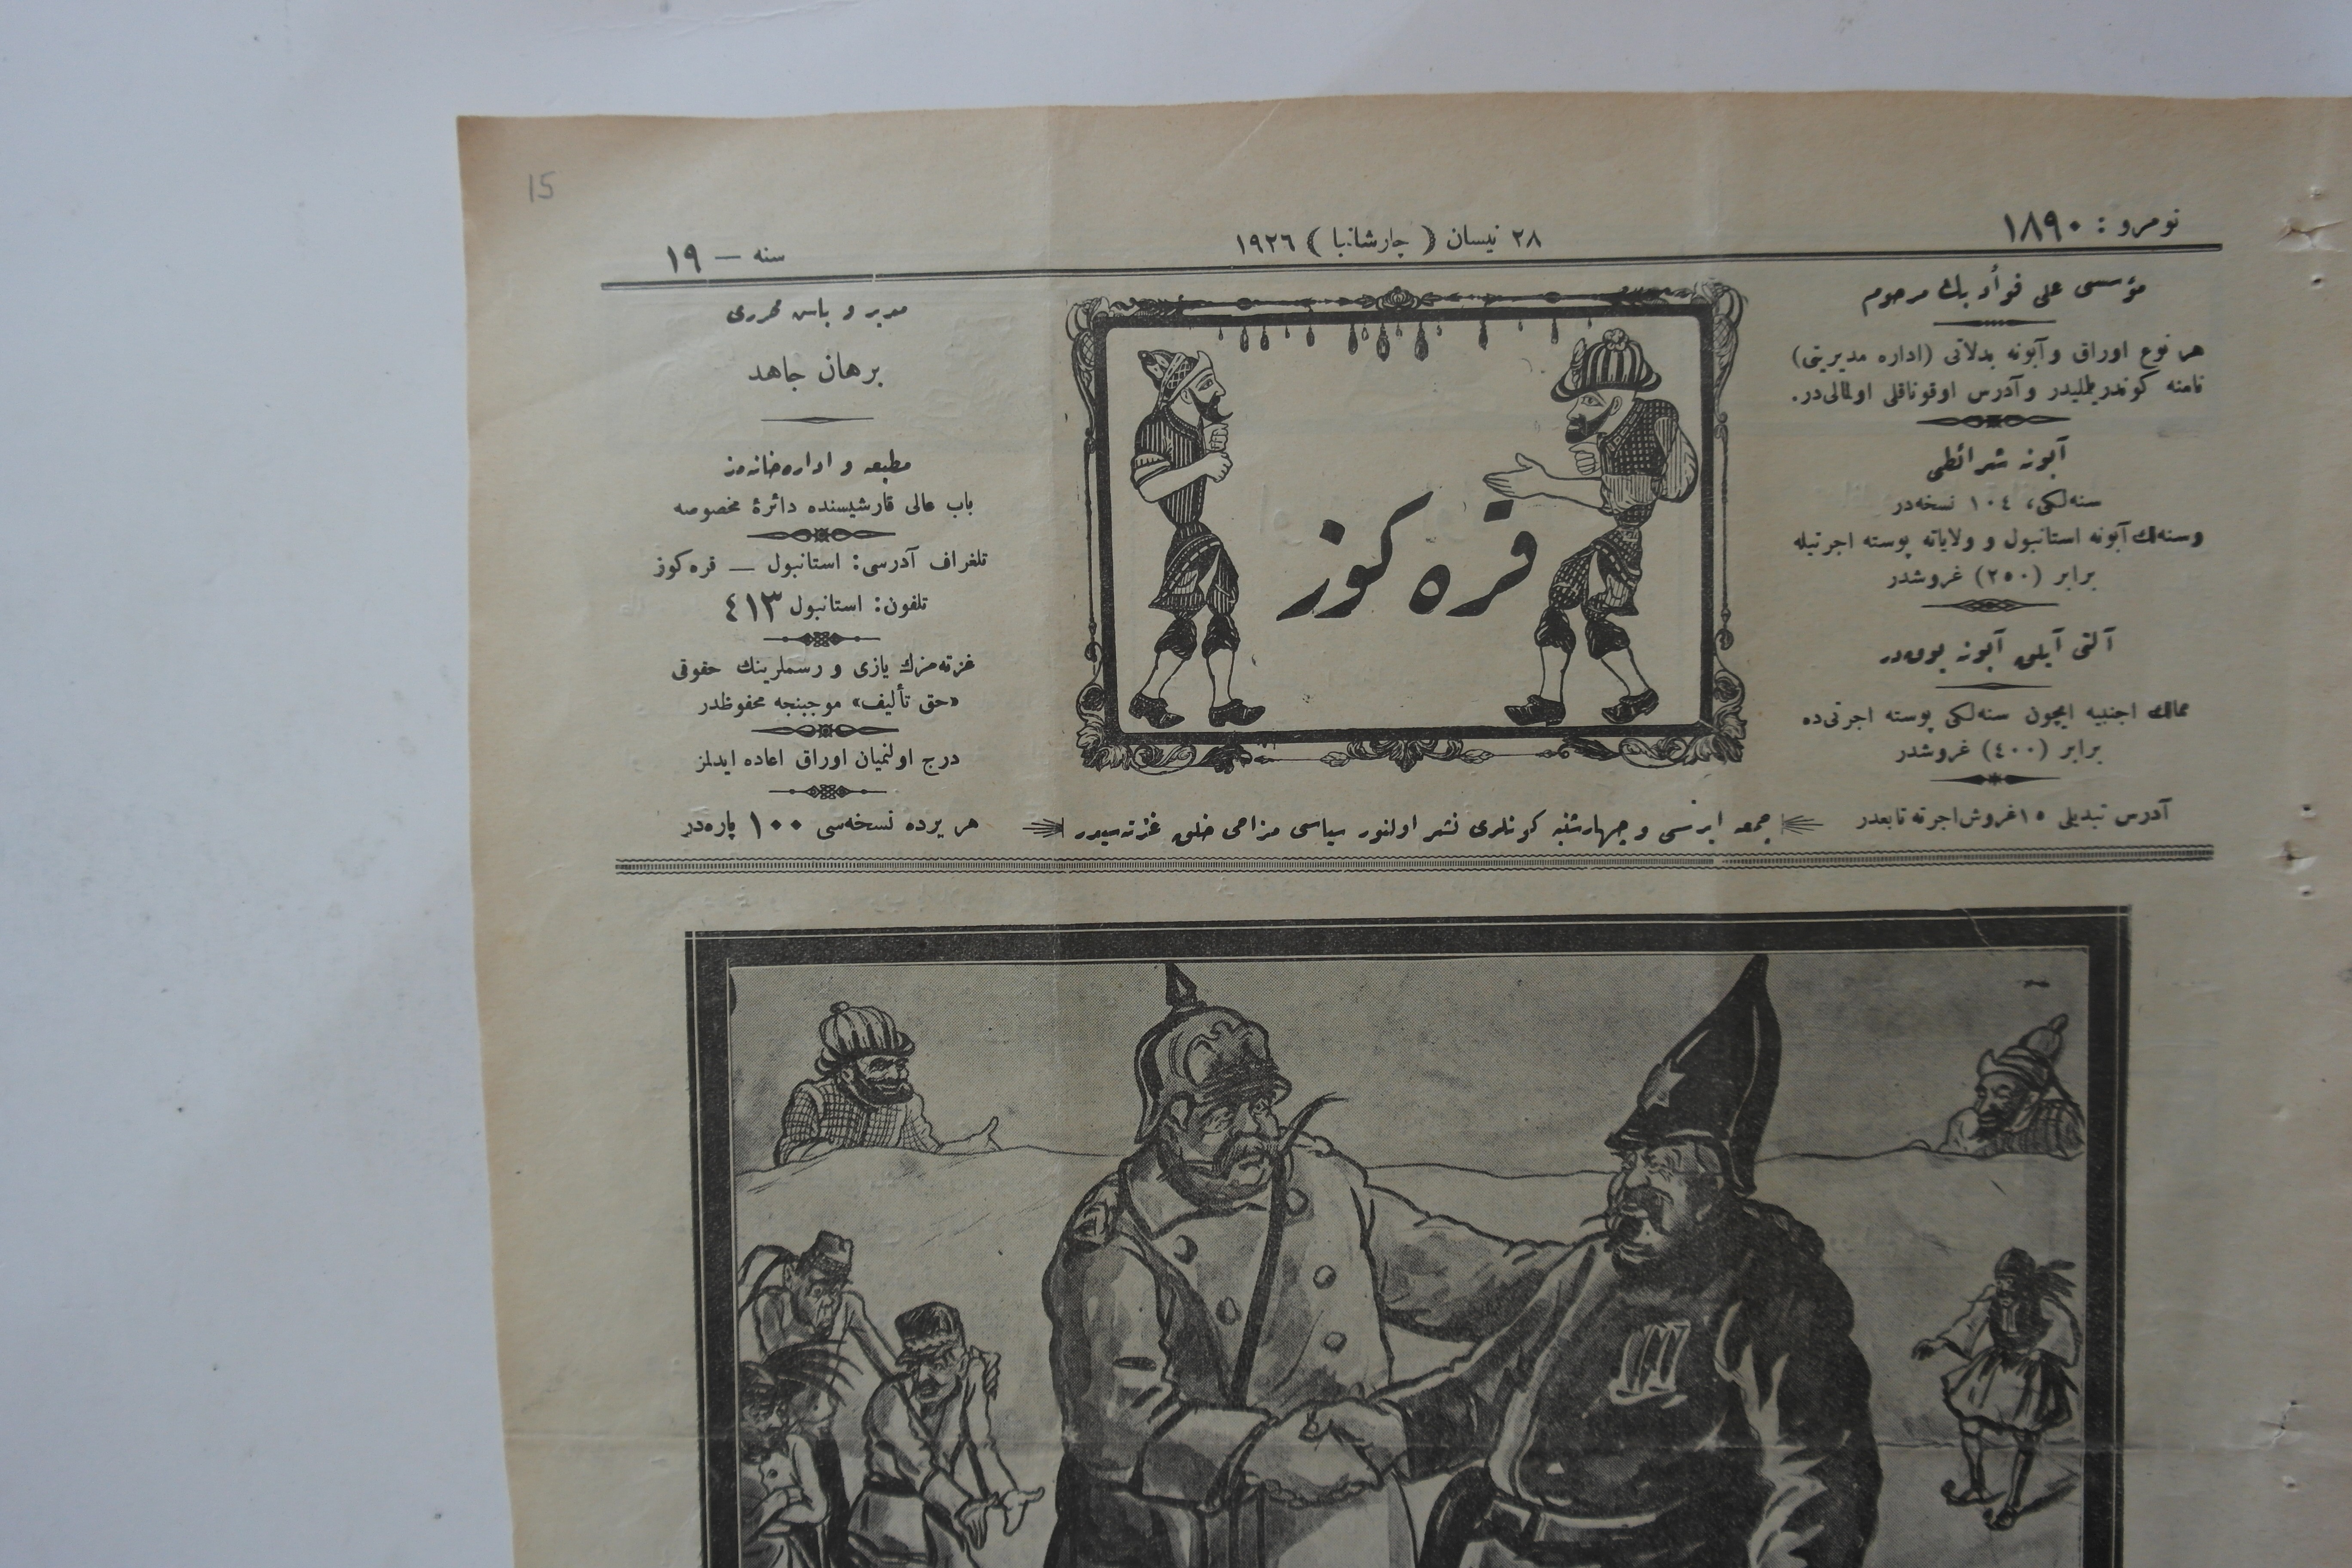 15
نومرو : ١٨٩٠
٢٨ نیسان ( چارشانبا ) ١٩٢٦
سنه — ١٩
مؤسسی علی فوأد بك مرحوم
هر نوع اوراق وآبونه بدلاتی (اداره مدیریتی)
نامنه کوندریلملیدر وآدرس اوقوناقلی اولمالی‌در.
آبونه شرائطی
سنه‌لکی، ١٠٤ نسخه‌در
وسنه‌لك آبونه استانبول و ولایاته پوسته اجرتیله
برابر (٢٥٠) غروشدر
آلتی آیلق آبونه یوق‌در
ممالك اجنبیه ایچون سنه‌لکی پوسته اجرتی‌ده
برابر (٤٠٠) غروشدر
آدرس تبدیلی ١٥ غروش اجرته تابعدر
قره کوز
جمعه ایرتسی و چهارشنبه کونلری نشر اولنور سیاسی مزاحی خلق غزته‌سیدر
مدیر و باش محرری
برهان جاهد
مطبعه و اداره‌خانه‌مز
باب عالی قارشیسنده دائرهٔ مخصوصه
تلغراف آدرسی: استانبول — قره کوز
تلفون: استانبول ٤١٣
غزته‌مزك یازی و رسملرینك حقوقی
«حق تألیف» موجبنجه محفوظدر
درج اولنمیان اوراق اعاده ایدلمز
هر یرده نسخه‌سی ١٠٠ پاره‌در